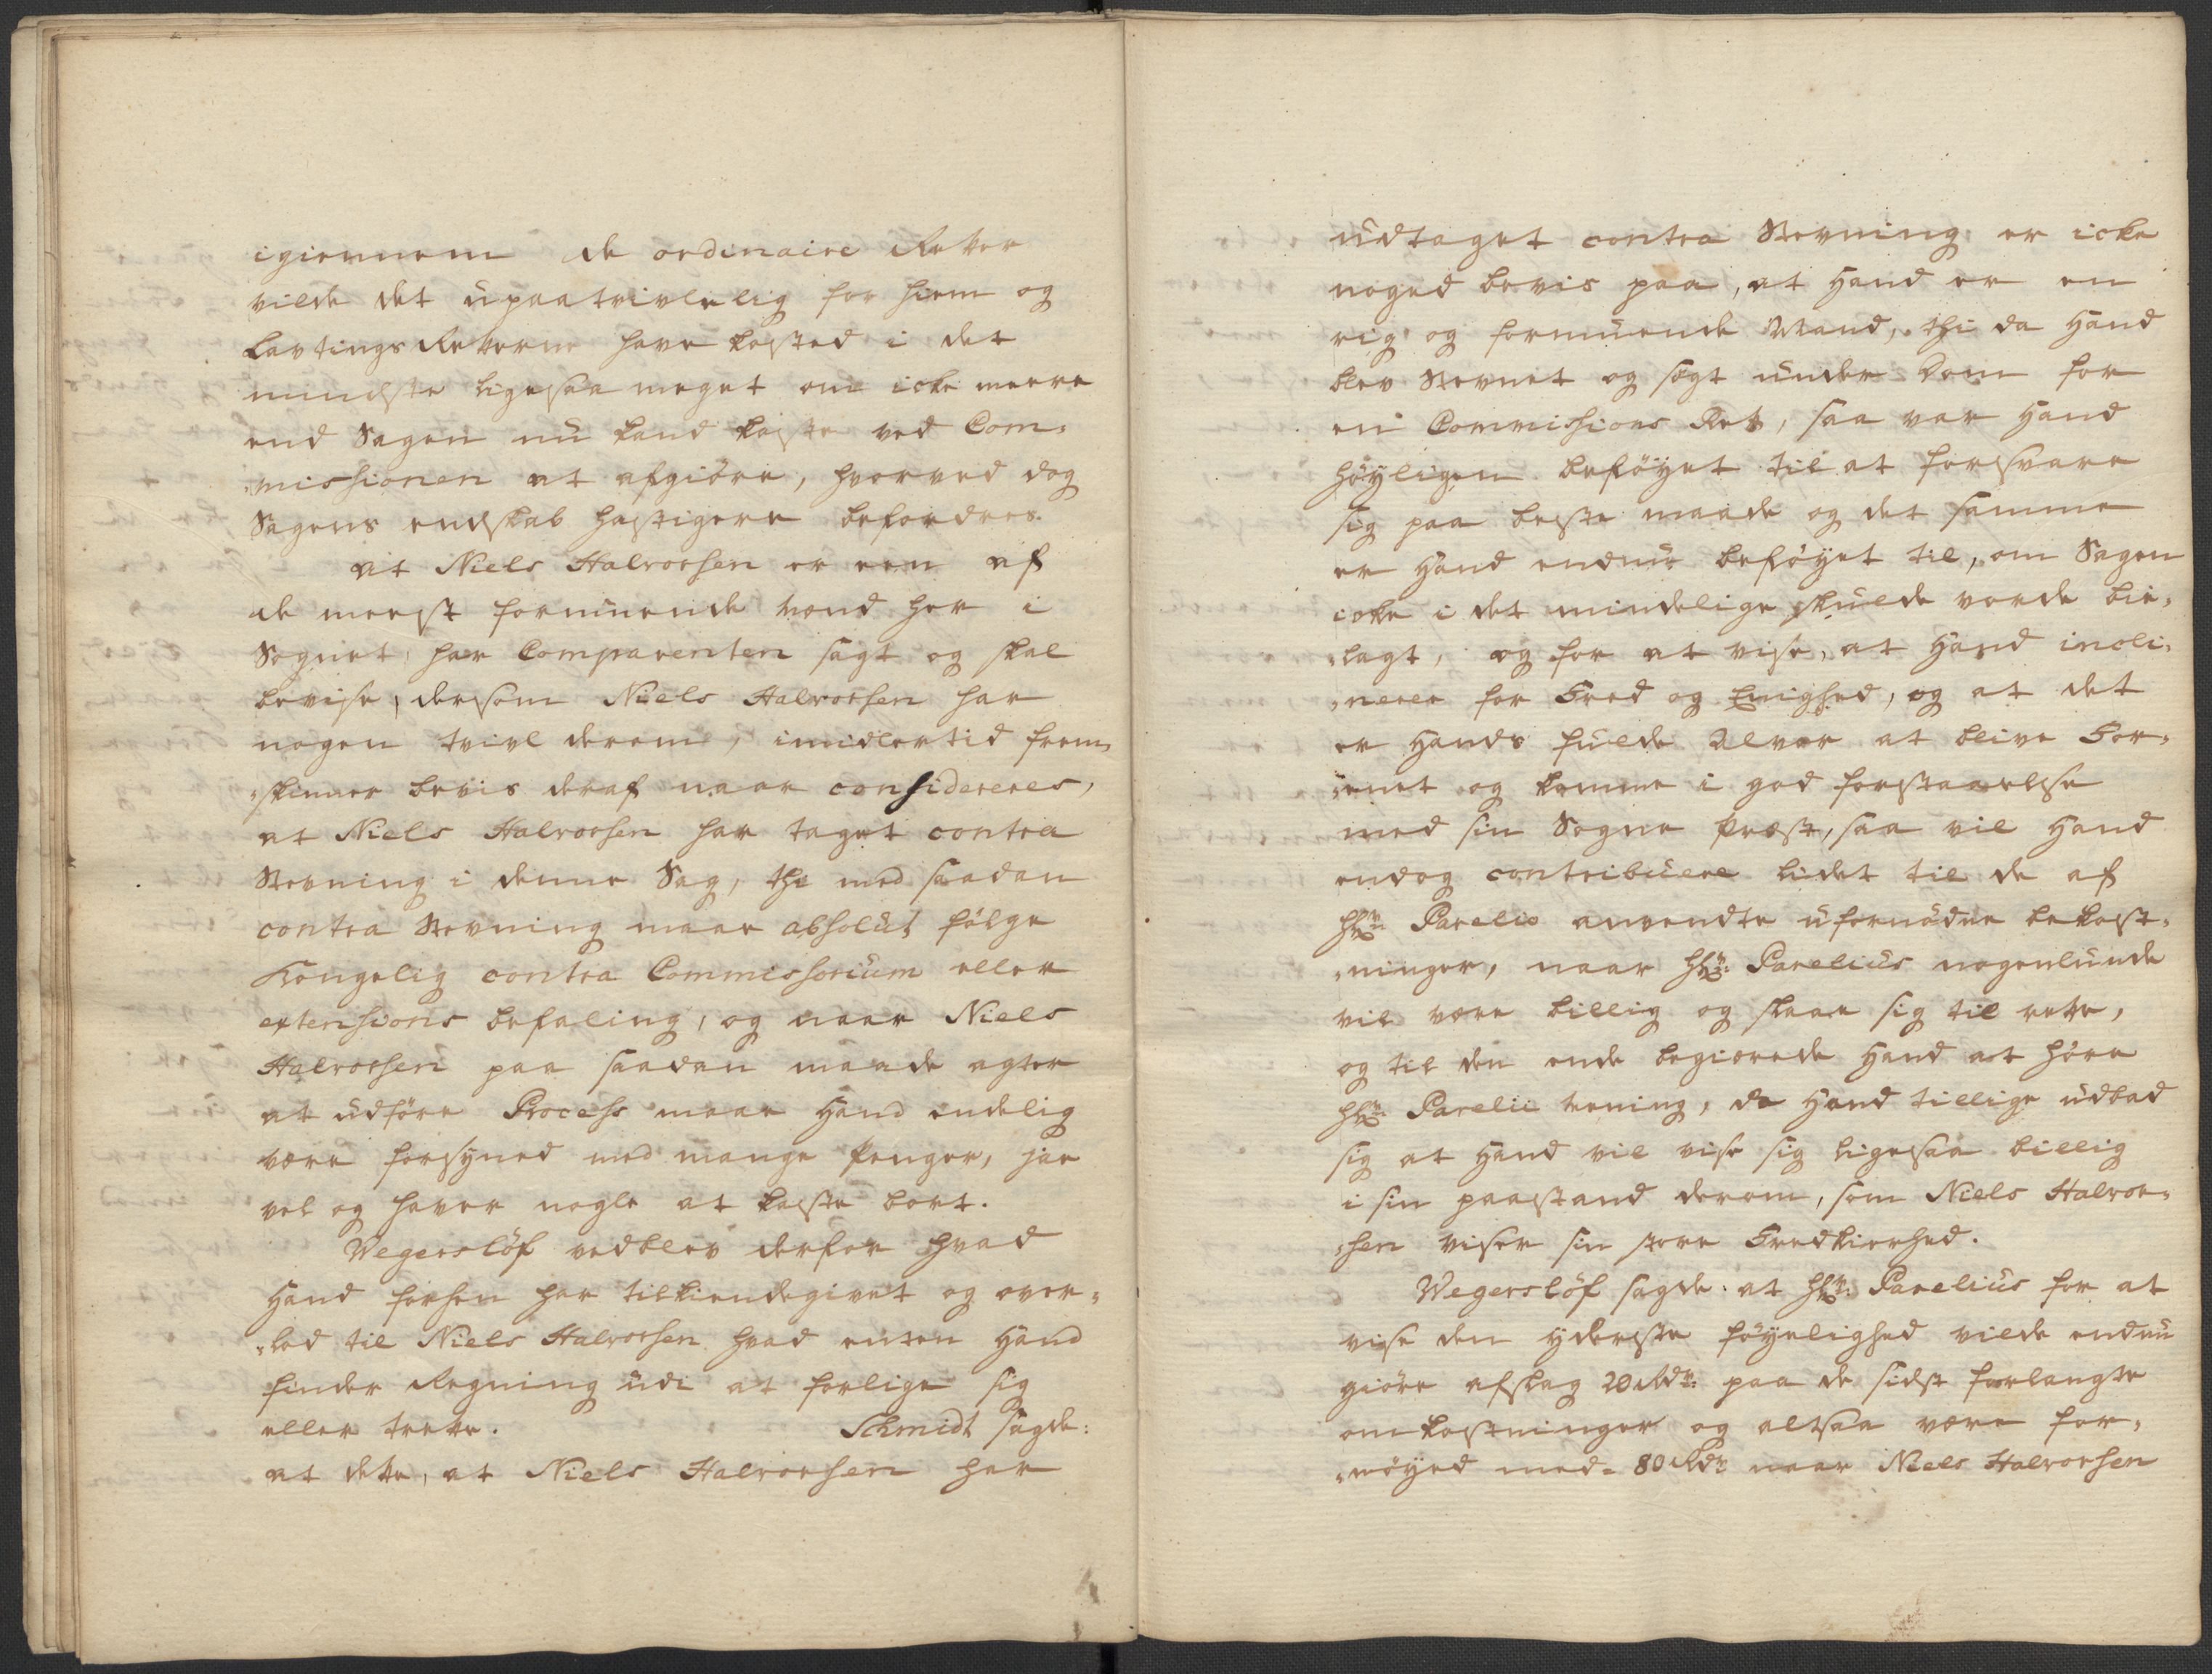 igiennem de ordinaire Retter
vilde det upaatvivlelig for hiem og
LavtingsRetterne have kosted i det
mindste ligesaa meget om icke meere
end Sagen nu kand koste ved Com-
missionen at afgiöre, hvorved dog
Sagens endskab hastigere befordres.
at Niels Halvorsen er een af
de meest formuende mænd her i
Sognet har Comparenten sagt og skal
bevise, dersom Niels Halvorsen har
nogen tvivl derom, imidlertid frem-
skinner bevis deraf naar considereres,
at Niels Halvorsen har taget contra
Stevning i denne Sag, thi med saadan
contra Stevning maae absolut fölge
Kongelig contra Commissorium eller
extensions befaling, og naar Niels
Halvorsen paa saadan maade agter
at udföre Process maae Hand endelig
være forsyned med mange Penger, jae
vel og haver nogle at kaste bort.
Wegerslöf vedblev derfor hvad
Hand forhen har tilkiendegivet og over-
lod til Niels Halvorsen hvad enten Hand
finder Regning udi at forlige sig
eller trette. Schmidt sagde:
at dette, at Niels Halvorsen har
udtaget contra Stevning er icke
noged bevis paa, at Hand er en
rig og formuende Mand, thi da Hand
blev Stevnet og søgt under Dom for
en Commissions Ret, saa var Hand
höyligen beföyet til at forsvare
sig paa beste maade og det samme
er Hand endnu beföyet til, om Sagen
icke i det mindelige skulde vorde bie-
lagt, og for at vise, at Hand incli-
nerer for Fred og Enighed, og at det
er Hands fulde Alvor at blive For-
enet og komme i god forstaaelse
med sin Sogne Præst, saa vil Hand
endog contribuere lidet til de af
Hr: Parelio anvendte ufornödne bekost-
ninger, naar Hr: Parelius nogenlunde
vil være billig og skaae sig til rette,
og til den ende begiærede Hand at höre
Hr: Parelii mening, da Hand tillige udbad
sig at Hand vil vise sig ligesaa billig
i sin paastand derom, som Niels Halvor-
sen viser sin store Fredkierhed.
Wegerslöf sagde: at Hr: Parelius for at
vise den yderste föyelighed vilde endnu
giöre afslag 20 Rdr: paa de sidst forlangte
omkostninger og altsaa være for-
nöyed med 80 Rdr naar Niels Halvorsen